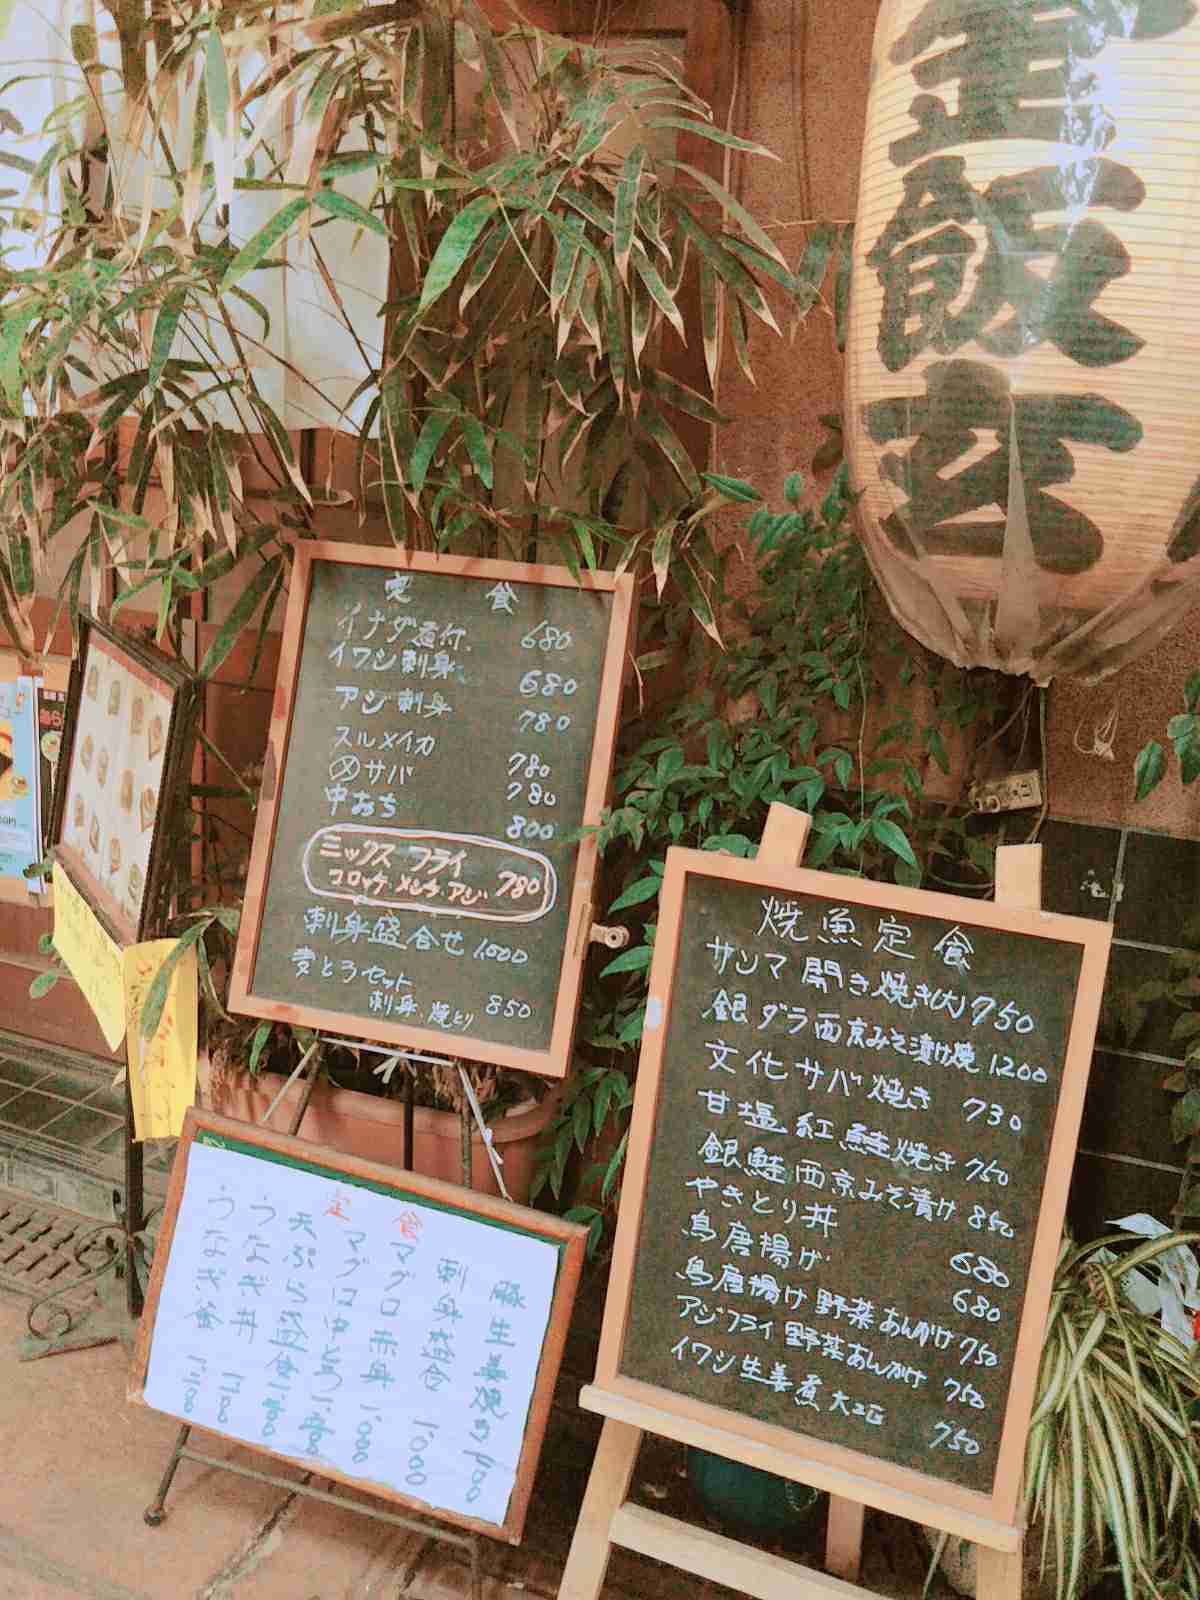 飯
定食
イナダ煮付 680
イワシ刺身 680
アジ刺身 780
スルメイカ 780
〆サバ 780
中おち 800
ミックスフライ
コロッケ・メンチ・アジ 780
刺身盛合せ 1,000
麦とろセット
刺身・焼とり 850
焼魚定食
サンマ開き焼き(大) 750
銀ダラ西京みそ漬け焼 1200
文化サバ焼き 730
甘塩紅鮭焼き 750
銀鮭西京みそ漬け 850
やきとり丼 680
鳥唐揚げ 680
鳥唐揚げ野菜あんかけ 750
アジフライ野菜あんかけ 750
イワシ生姜煮 750
定食
豚生姜焼き
刺身盛合 1,000
マグロ赤身 1,000
マグロ中とろ
天ぷら盛合
うなぎ丼
うなぎ釜